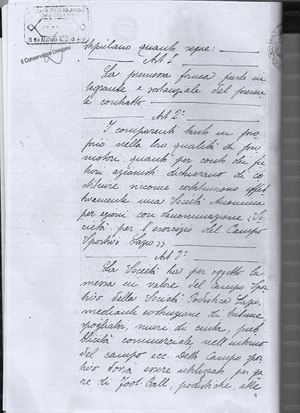 stipulano quanto segue:
Art 1º
La premessa forma parte in
tegrante e sostanziale del presen
te contratto
Art 2º
I comparenti tanto in pro
prio nella loro qualità di pro
motori, quanto per conto dei
azionisti dichiarano di co
stituire siccome costituiscono effet
tivamente una Società Anonima
per azioni con denominazione "So
cietà per l'esercizio del Campo
Sportivo Lazio"
Art 3º
La Società ha per oggetto la
messa in valore del Campo Spor
tivo della Società Podistica Lazio,
mediante costruzione di tribune
spogliatoi, muri di cinta, pub
blicità commerciale, nell'interno
del campo ecc. Detto Campo spor
tivo dovrà essere utilizzato per ga
re di Foot Ball, podistiche, alle